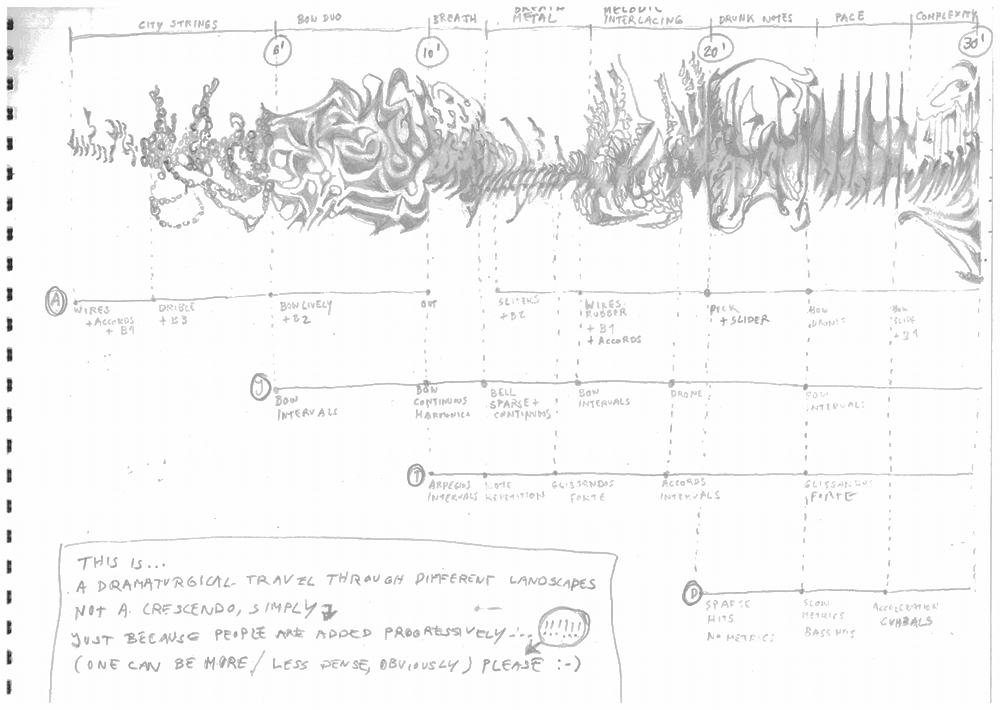 CITY STRINGS
BOW DUO
BREATH
BREATH METAL
MELODIC INTERLACING
DRUNK NOTES
PACE
COMPLEXITY
6'
10'
20'
30'
A
WIRES
+ ACCORDS
+ B1
DRIBLE
+ B3
BOW LIVELY
+ B2
OUT
SLIDERS
+ B2
WIRES
RUBBER
+ B1
+ ACCORDS
PICK
+ SLIDER
BOW
DRONES
BOW
SLIDE
+ B1
Y
BOW
INTERVALS
BOW
CONTINUOUS
HARMONICS
BELL
SPARSE +
CONTINUOUS
BOW
INTERVALS
DRONE
BOW
INTERVALS
T
ARPEGIOS
INTERVALS
NOTE
REPETITION
GLISSANDOS
FORTE
ACCORDS
INTERVALS
GLISSANDOS
FORTE
D
SPARSE
HITS
NO METRICS
SLOW
METRICS
ACCELERATION
CYMBALS
THIS IS...
A DRAMATURGICAL TRAVEL THROUGH DIFFERENT LANDSCAPES
NOT A CRESCENDO, SIMPLY
JUST BECAUSE PEOPLE ARE ADDED PROGRESSIVELY...
(ONE CAN BE MORE / LESS DENSE, OBVIOUSLY) PLEASE :-)